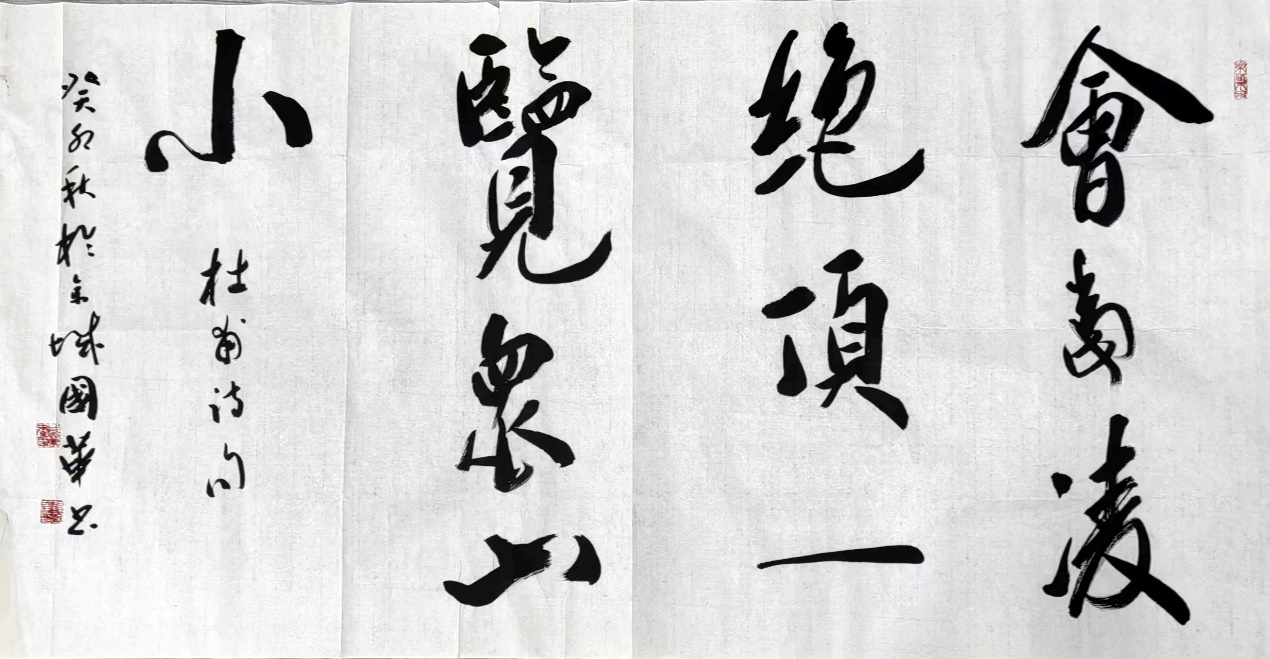 會當凌
絕頂一
覽眾山
小
杜甫詩句
癸卯秋於金城國華书